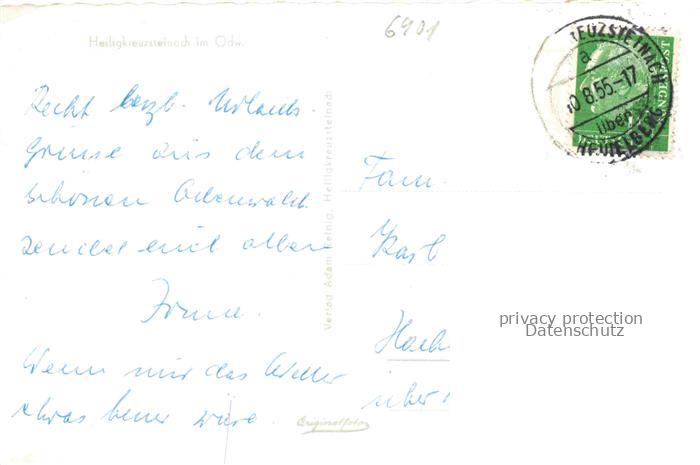 6901
Heiligkreuzsteinach im Odw.
Recht herzl. Urlaubs-
grüsse aus dem
schönen Odenwald
sendet euch allen
Irma.
Wenn nur das Wetter
etwas besser wäre.
Verlag Adam Reinig, Heiligkreuzsteinach
Originalfoto
Fam.
Karl
Hock
über
EUZSTEINACH
a
10.8.55.-17
über
HEIDELBERG
privacy protection
Datenschutz